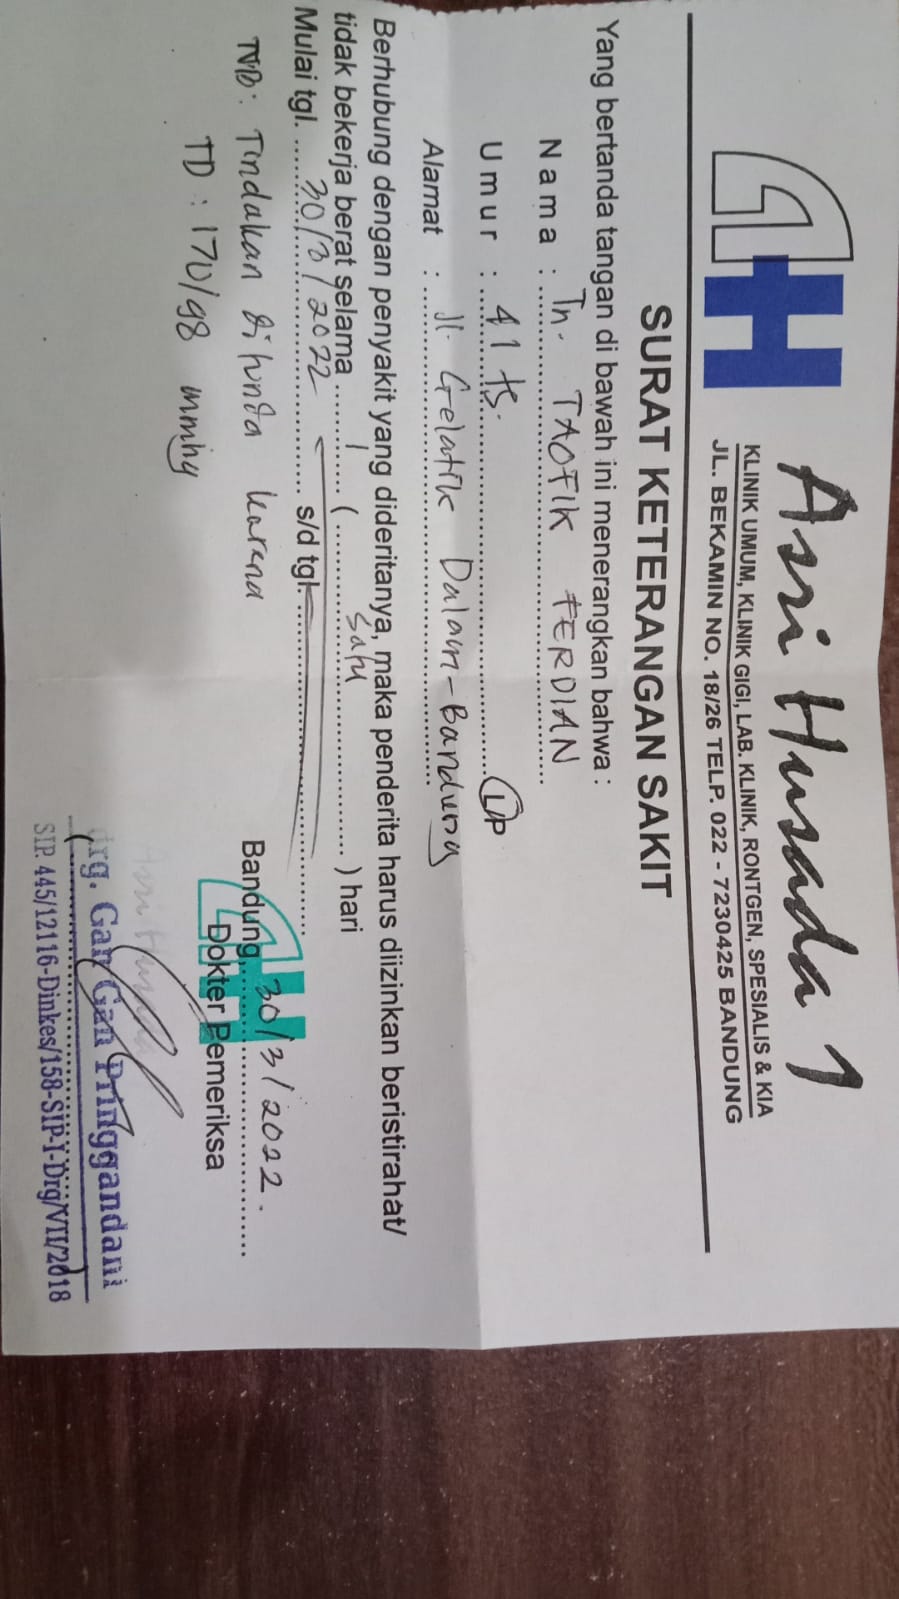 Asri Husada 1
KLINIK UMUM, KLINIK GIGI, LAB. KLINIK, RONTGEN, SPESIALIS & KIA
JL. BEKAMIN NO. 18/26 TELP. 022 - 7230425 BANDUNG
SURAT KETERANGAN SAKIT
Yang bertanda tangan di bawah ini menerangkan bahwa :
Nama : Tn. TAOFIK FERDIAN
Umur : 41 th. L/P
Alamat : Jl. Gelatik Dalam - Bandung
Berhubung dengan penyakit yang dideritanya, maka penderita harus diizinkan beristirahat/
tidak bekerja berat selama 1 ( Satu ) hari
Mulai tgl. 30/3/2022 s/d tgl.
NB: Tindakan ditunda karena
TD : 170/98 mmHg
Bandung, 30/3/2022.
Dokter Pemeriksa
Asri Husada
drg. Gan Gan Pringgandani
SIP. 445/12116-Dinkes/158-SIP-I-Drg/VII/2018